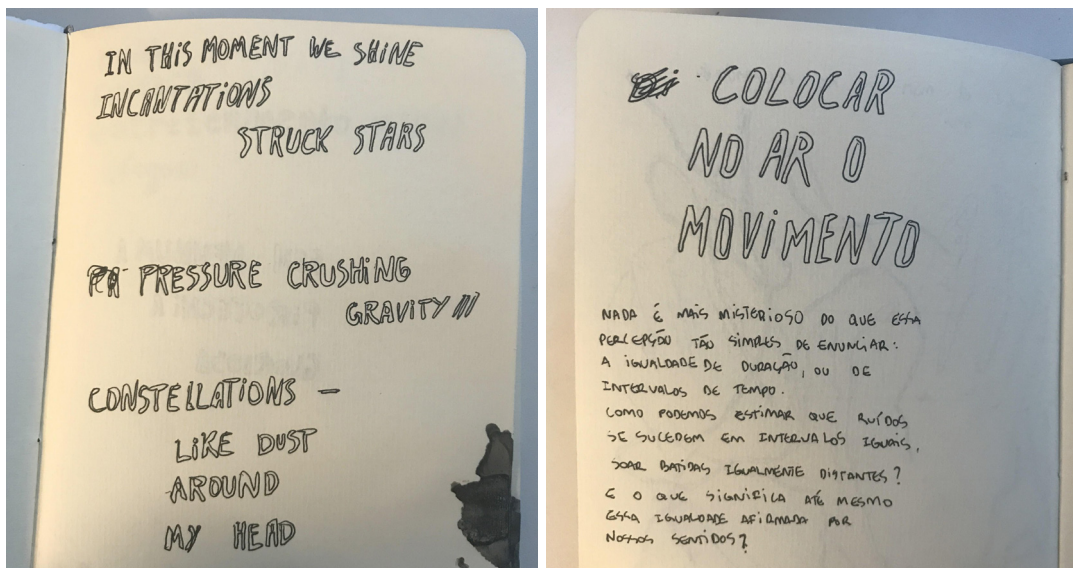 IN THIS MOMENT WE SHINE
INCANTATIONS
STRUCK STARS
PRESSURE CRUSHING
GRAVITY ///
CONSTELLATIONS —
LIKE DUST
AROUND
MY HEAD
COLOCAR
NO AR O
MOVIMENTO
NADA É MAIS MISTERIOSO DO QUE ESSA
PERCEPÇÃO TÃO SIMPLES DE ENUNCIAR:
A IGUALDADE DE DURAÇÃO, OU DE
INTERVALOS DE TEMPO.
COMO PODEMOS ESTIMAR QUE RUÍDOS
SE SUCEDEM EM INTERVALOS IGUAIS,
SOAR BATIDAS IGUALMENTE DISTANTES?
E O QUE SIGNIFICA ATÉ MESMO
ESSA IGUALDADE AFIRMADA POR
NOSSOS SENTIDOS?